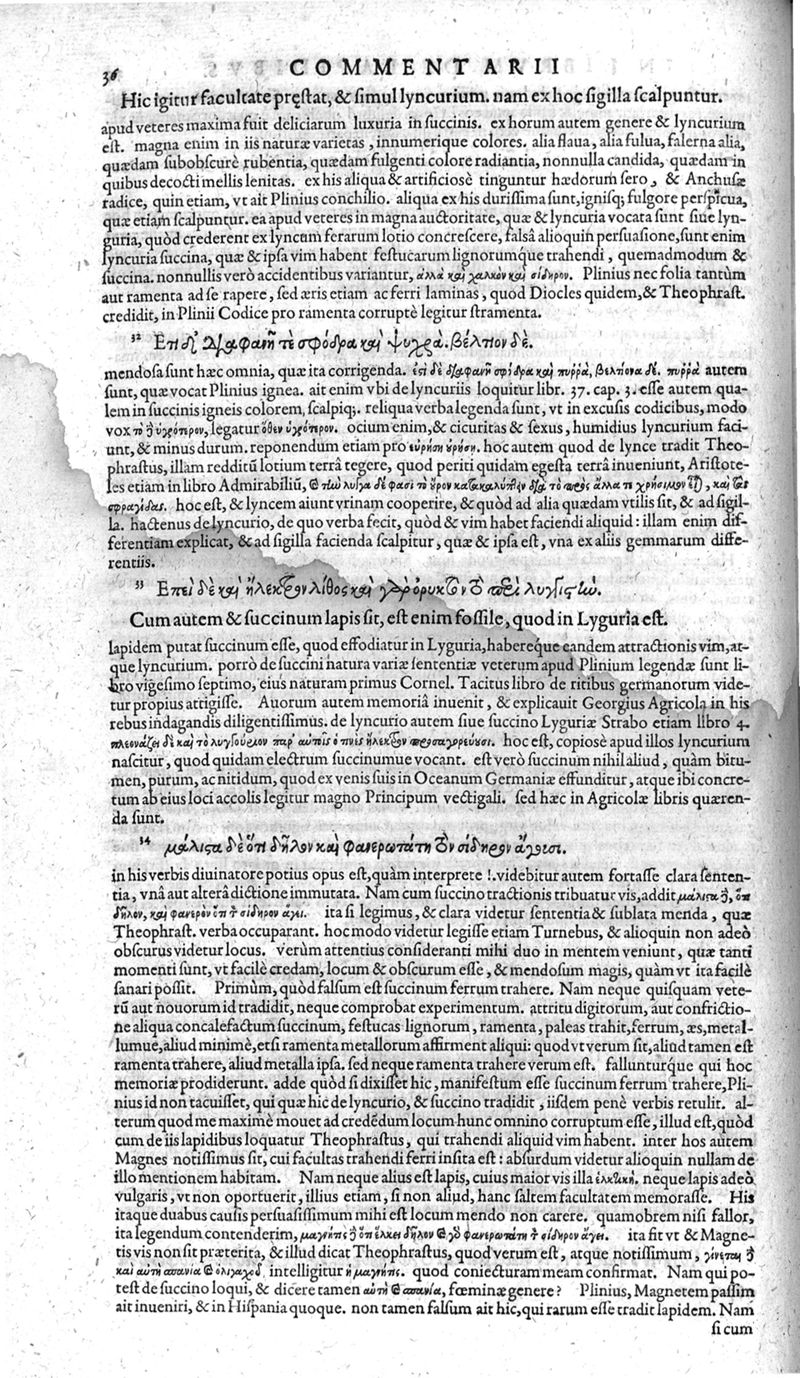 36 COMMENTARII
Hic igitur facultate pręstat, & simul lyncurium. nam ex hoc sigilla scalpuntur.
apud veteres maxima fuit deliciarum luxuria in succinis. ex horum autem genere & lyncurium
est. magna enim in iis naturæ varietas, innumerique colores. alia flaua, alia fulua, falerna alia,
quædam subobscurè rubentia, quædam fulgenti colore radiantia, nonnulla candida, quædam in
quibus decocti mellis lenitas. ex his aliqua & artificiosè tinguntur hædorum sero, & Anchusæ
radice, quin etiam, vt ait Plinius conchilio. aliqua ex his durissima sunt, ignisq; fulgore perspicua,
quæ etiam scalpuntur. ea apud veteres in magna auctoritate, quæ & lyncuria vocata sunt siue lyn-
guria, quòd crederent ex lyncum ferarum lotio concrescere, falsâ alioquin persuasione, sunt enim
lyncuria succina, quæ & ipsa vim habent festucarum lignorumque trahendi, quemadmodum &
succina. nonnullis verò accidentibus variantur, ἀλλὰ καὶ χαλκὸν καὶ σίδηρον. Plinius nec folia tantùm
aut ramenta ad se rapere, sed æris etiam ac ferri laminas, quod Diocles quidem, & Theophrast.
credidit, in Plinii Codice pro ramenta corruptè legitur stramenta.
32 Ἔτι δὲ διαφανῆ τε σφόδρα καὶ ψυχρὰ. βέλτιον δὲ.
mendosa sunt hæc omnia, quæ ita corrigenda. ἐστὶ δὲ διαφανῆ σφόδρα καὶ πυρρὰ, βελτίονα δὲ. πυρρὰ autem
sunt, quæ vocat Plinius ignea. ait enim vbi de lyncuriis loquitur libr. 37. cap. 3. esse autem qua-
lem in succinis igneis colorem, scalpiq;. reliqua verba legenda sunt, vt in excusis codicibus, modo
vox τὸ δ' ὑγρότερον, legatur ὅθεν ὑγρότερον. ocium enim, & cicuritas & sexus, humidius lyncurium faci-
unt, & minus durum. reponendum etiam pro εὑρήσῃ οὐρήσῃ. hoc autem quod de lynce tradit Theo-
phrastus, illam redditū lotium terrâ tegere, quod periti quidam egesta terrâ inueniunt, Aristote-
les etiam in libro Admirabiliū, καὶ τὴν λύγγα δέ φασι τὸ οὖρον κατακαλύπτειν διὰ τὸ πρὸς ἄλλα τι χρήσιμον εἶ), καὶ τὰς
σφραγίδας. hoc est, & lyncem aiunt vrinam cooperire, & quòd ad alia quædam vtilis sit, & ad sigil-
la. hactenus de lyncurio, de quo verba fecit, quòd & vim habet faciendi aliquid: illam enim dif-
ferentiam explicat, & ad sigilla facienda scalpitur, quæ & ipsa est, vna ex aliis gemmarum diffe-
rentiis.
33 Ἐπεὶ δὲ καὶ ἤλεκτρον λίθος καὶ γὰρ ὀρυκτὸν τὸ περὶ λυγιστικὴν.
Cum autem & succinum lapis sit, est enim fossile, quod in Lyguria est.
lapidem putat succinum esse, quod effodiatur in Lyguria, habereque eandem attractionis vim, at-
que lyncurium. porrò de succini natura variæ sententiæ veterum apud Plinium legendæ sunt li-
bro vigesimo septimo, eius naturam primus Cornel. Tacitus libro de ritibus germanorum vide-
tur propius attigisse. Auorum autem memoriâ inuenit, & explicauit Georgius Agricola in his
rebus indagandis diligentissimus. de lyncurio autem siue succino Lyguriæ Strabo etiam libro 4.
πλεονάζει δὲ καὶ τὸ λυγγούριον παρ' αὐτοῖς ὅ τινες ἤλεκτρον προσαγορεύουσι. hoc est, copiosè apud illos lyncurium
nascitur, quod quidam electrum succinumue vocant. est verò succinum nihil aliud, quàm bitu-
men, purum, ac nitidum, quod ex venis suis in Oceanum Germaniæ effunditur, atque ibi concre-
tum ab eius loci accolis legitur magno Principum vectigali. sed hæc in Agricolæ libris quæren-
da sunt.
34 μάλιστα δὲ ὅτι δῆλον καὶ φανερωτάτη τὸν σίδηρον ἄγεισι.
in his verbis diuinatore potius opus est, quàm interprete !. videbitur autem fortasse clara senten-
tia, vnâ aut alterâ dictione immutata. Nam cum succino tractionis tribuatur vis, addit μάλιστα δ', ὅτι
δῆλον, καὶ φανερὸν ὅτι τ σίδηρον ἄγει. ita si legimus, & clara videtur sententia & sublata menda, quæ
Theophrast. verba occuparant. hoc modo videtur legisse etiam Turnebus, & alioquin non adeò
obscurus videtur locus. verùm attentius consideranti mihi duo in mentem veniunt, quæ tanti
momenti sunt, vt facilè credam, locum & obscurum esse, & mendosum magis, quàm vt ita facilè
sanari possit. Primùm, quòd falsum est succinum ferrum trahere. Nam neque quisquam vete-
rū aut nouorum id tradidit, neque comprobat experimentum. attritu digitorum, aut confrictio-
ne aliqua concalefactum succinum, festucas lignorum, ramenta, paleas trahit, ferrum, æs, metal-
lumue, aliud minimè, etsi ramenta metallorum affirment aliqui: quod vt verum sit, aliud tamen est
ramenta trahere, aliud metalla ipsa. sed neque ramenta trahere verum est. falluntur que qui hoc
memoriæ prodiderunt. adde quòd si dixisset hic, manifestum esse succinum ferrum trahere, Pli-
nius id non tacuisset, qui quæ hic de lyncurio, & succino tradidit, iisdem penè verbis retulit. al-
terum quod me maximè mouet ad credēdum locum hunc omnino corruptum esse, illud est, quòd
cum de iis lapidibus loquatur Theophrastus, qui trahendi aliquid vim habent. inter hos autem
Magnes notissimus sit, cui facultas trahendi ferri insita est: absurdum videtur alioquin nullam de
illo mentionem habitam. Nam neque alius est lapis, cuius maior vis illa ἑλκτικὴ. neque lapis adeò
vulgaris, vt non oportuerit, illius etiam, si non aliud, hanc saltem facultatem memorasse. His
itaque duabus causis persuasissimum mihi est locum mendo non carere. quamobrem nisi fallor,
ita legendum contenderim, μαγνήτης δ' ὅτι ἕλκει δῆλον καὶ γὸ φανερωτάτη τ σίδηρον ἄγει. ita fit vt & Magne-
tis vis non sit præterita, & illud dicat Theophrastus, quod verum est, atque notissimum, γίνεται δ'
καὶ αὐτὴ σπανία καὶ ὀλιγαχοῦ intelligitur ἡ μαγνήτης. quod coniecturam meam confirmat. Nam qui po-
test de succino loqui, & dicere tamen αὐτὴ καὶ σπανία, fœminæ genere? Plinius, Magnetem passim
ait inueniri, & in Hispania quoque. non tamen falsum ait hic, qui rarum esse tradit lapidem. Nam
si cum